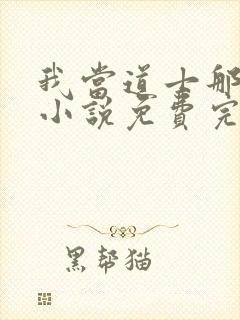 我當道士那
小說免費完
黑幫猫